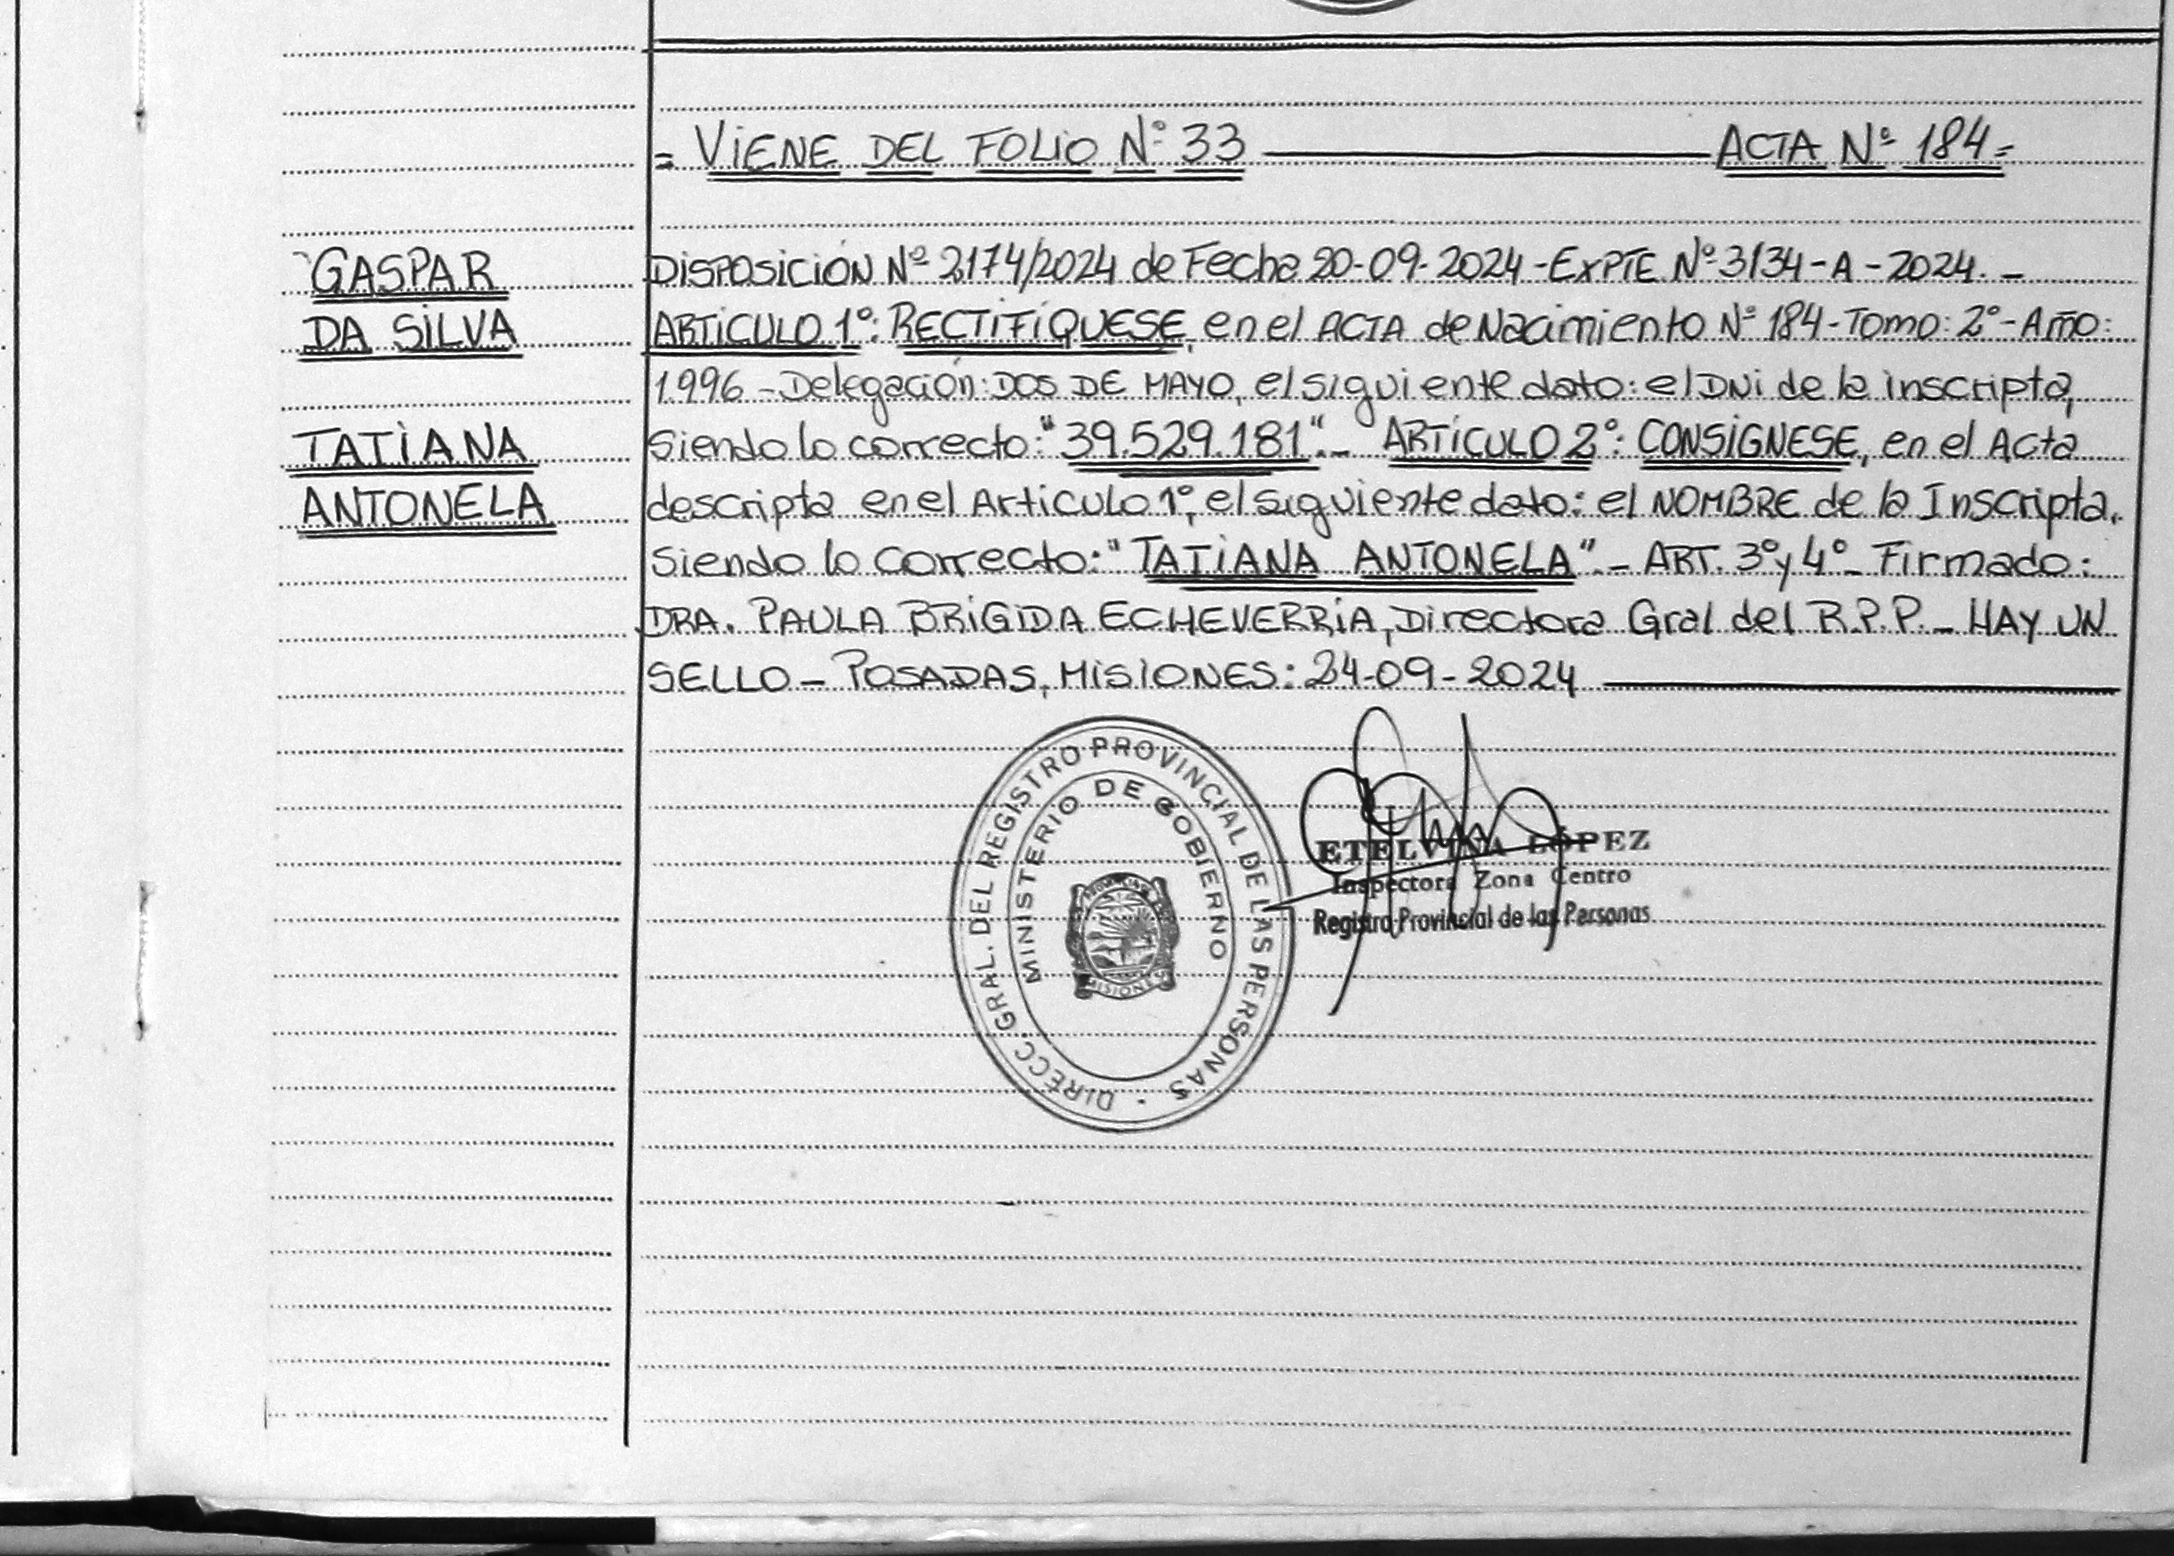 = VIENE DEL FOLIO Nº 33 ACTA Nº 184=
GASPAR
DA SILVA
TATIANA
ANTONELA
DISPOSICIÓN Nº 2174/2024 de Fecha 20-09-2024-EXPTE Nº 3134-A-2024.-
ARTICULO 1º: RECTIFÍQUESE, en el ACTA de Nacimiento Nº 184-Tomo: 2º-Año:
1.996-Delegación: DOS DE MAYO, el siguiente dato: el DNI de la inscripta,
siendo lo correcto: "39.529.181".- ARTÍCULO 2º: CONSÍGNESE, en el Acta
descripta en el Articulo 1º, el siguiente dato: el NOMBRE de la Inscripta.
Siendo lo correcto: "TATIANA ANTONELA".- ART. 3º y 4º- Firmado:
DRA. PAULA BRÍGIDA ECHEVERRÍA, Directora Gral del R.P.P.- HAY UN
SELLO- POSADAS, MISIONES: 24-09-2024
DIRECC. GRAL. DEL REGISTRO PROVINCIAL DE LAS PERSONAS
MINISTERIO DE GOBIERNO
MISIONES
ETELVINA LÓPEZ
Inspectora Zona Centro
Registro Provincial de las Personas